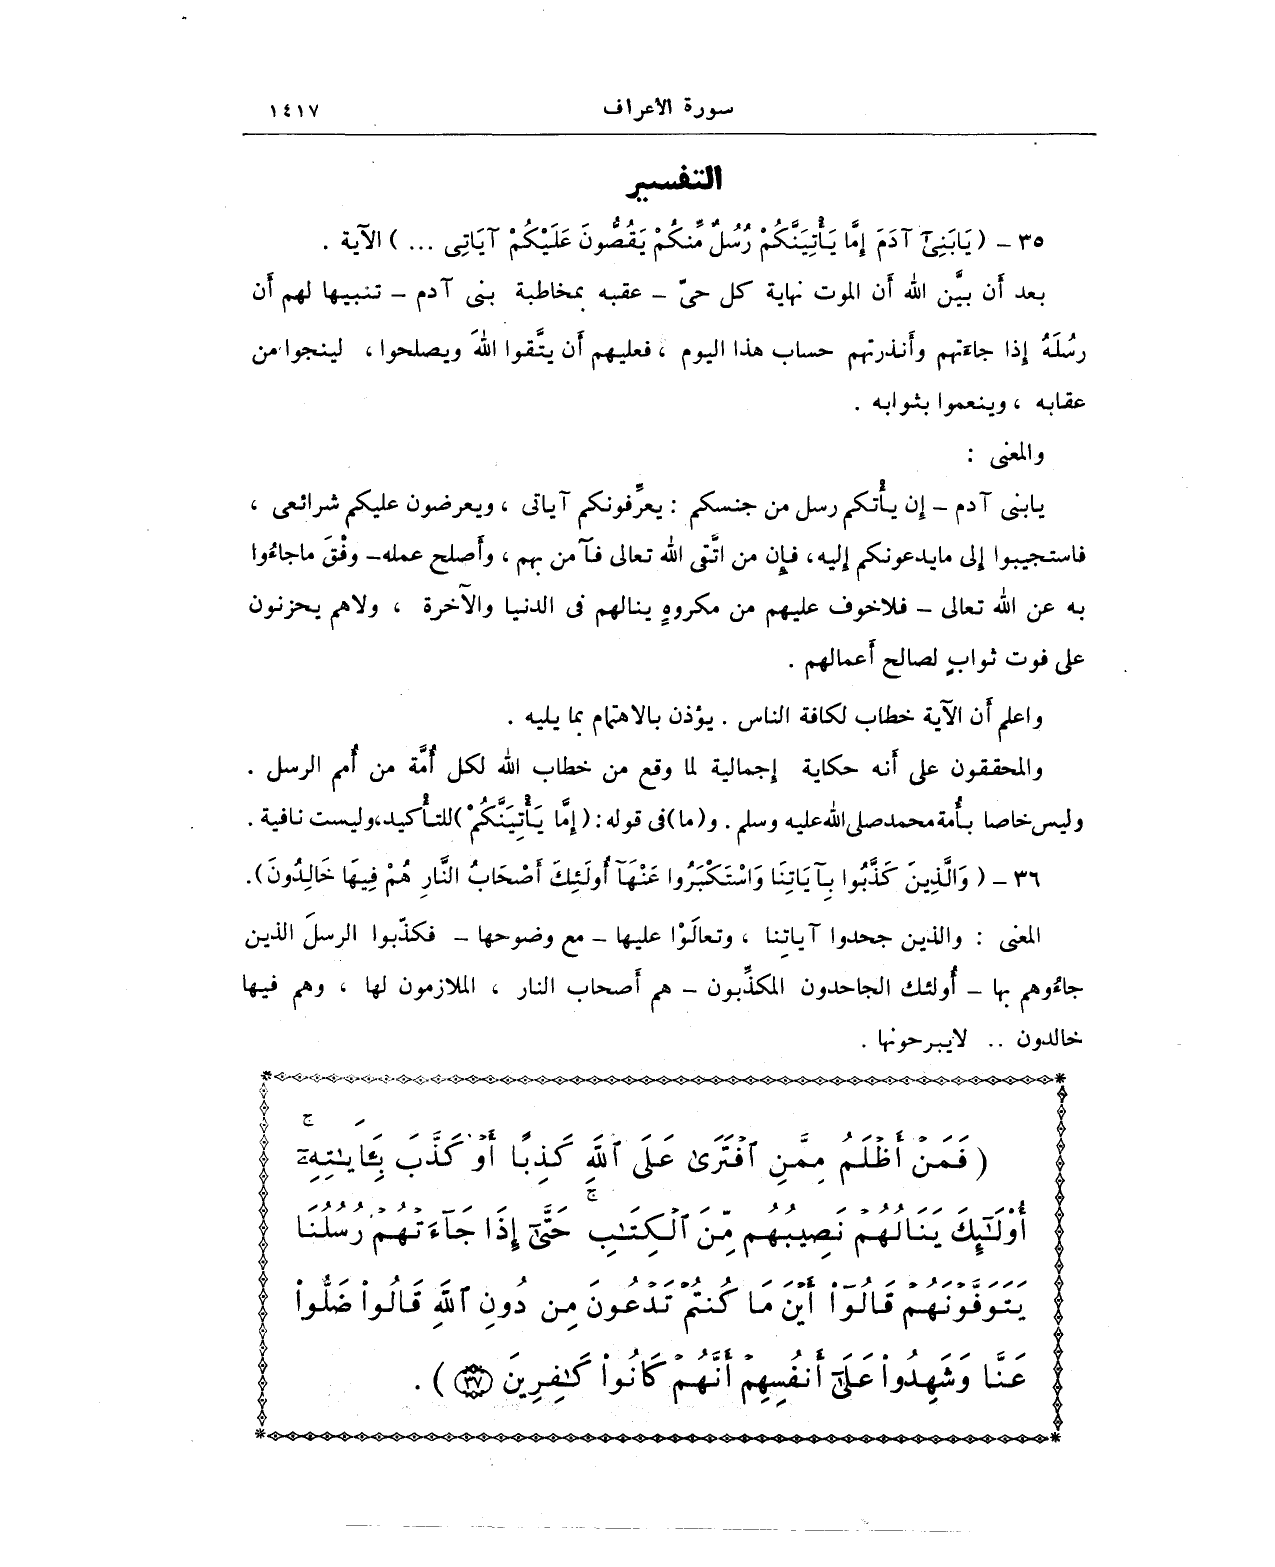 سورة الأعراف ١٤١٧
التفسير
٣٥ – ( يَابَنِىٓ آدَمَ إِمَّا يَأْتِيَنَّكُمْ رُسُلٌ مِّنكُمْ يَقُصُّونَ عَلَيْكُمْ آيَاتِى ... ) الآية .
بعد أن بيَّن الله أن الموت نهاية كل حىّ – عقبه بمخاطبة بنى آدم – تنبيها لهم أن
رسُلَهُ إذا جاءتهم وأنذرتهم حساب هذا اليوم ، فعليهم أن يتَّقوا اللهَ ويصلحوا ، لينجوا من
عقابه ، وينعموا بثوابه .
والمعنى :
يابنى آدم – إن يأْتكم رسل من جنسكم : يعرِّفونكم آياتى ، ويعرضون عليكم شرائعى ،
فاستجيبوا إلى مايدعونكم إليه، فإن من اتَّقى الله تعالى فآمن بهم ، وأصلح عمله – وفْقَ ماجاءُوا
به عن الله تعالى – فلاخوف عليهم من مكروهٍ ينالهم فى الدنيا والآخرة ، ولاهم يحزنون
على فوت ثوابٍ لصالح أعمالهم .
واعلم أن الآية خطاب لكافة الناس . يؤذن بالاهتمام بما يليه .
والمحققون على أنه حكاية إجمالية لما وقع من خطاب الله لكل أُمَّة من أُمم الرسل .
وليس خاصا بأُمة محمد صلى الله عليه وسلم . و(ما) فى قوله : ( إِمَّا يَأْتِيَنَّكُمْ ) للتأْكيد، وليست نافية .
٣٦ – ( وَالَّذِينَ كَذَّبُوا بِآيَاتِنَا وَاسْتَكْبَرُوا عَنْهَآ أُولَئِكَ أَصْحَابُ النَّارِ هُمْ فِيهَا خَالِدُونَ ).
المعنى : والذين جحدوا آياتِنا ، وتعالَوْا عليها – مع وضوحها – فكذّبوا الرسلَ الذين
جاءُوهم بها – أُولئك الجاحدون المكذِّبون – هم أصحاب النار ، الملازمون لها ، وهم فيها
خالدون .. لايبرحونها .
( فَمَنْ أَظْلَمُ مِمَّنِ ٱفْتَرَىٰ عَلَى ٱللَّهِ كَذِبًا أَوْ كَذَّبَ بِـَٔايَـٰتِهِۦٓ ۚ
أُوْلَـٰٓئِكَ يَنَالُهُمْ نَصِيبُهُم مِّنَ ٱلْكِتَـٰبِ ۚ حَتَّىٰٓ إِذَا جَآءَتْهُمْ رُسُلُنَا
يَتَوَفَّوْنَهُمْ قَالُوٓاْ أَيْنَ مَا كُنتُمْ تَدْعُونَ مِن دُونِ ٱللَّهِ قَالُواْ ضَلُّواْ
عَنَّا وَشَهِدُواْ عَلَىٰٓ أَنفُسِهِمْ أَنَّهُمْ كَانُواْ كَـٰفِرِينَ (٣٧) ) .